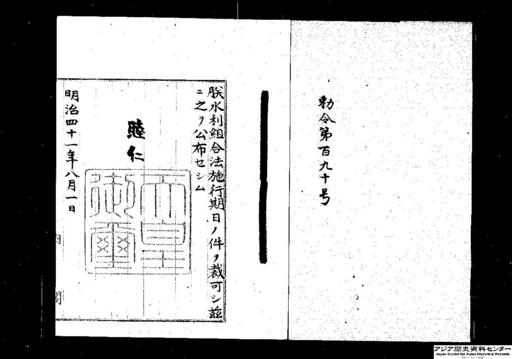 勅令第百九十号
朕水利組合法施行期日ノ件ヲ裁可シ茲
ニ之ヲ公布セシム
睦仁
天皇御璽
明治四十一年八月一日
内閣
アジア歴史資料センター
Japan Center for Asian Historical Records